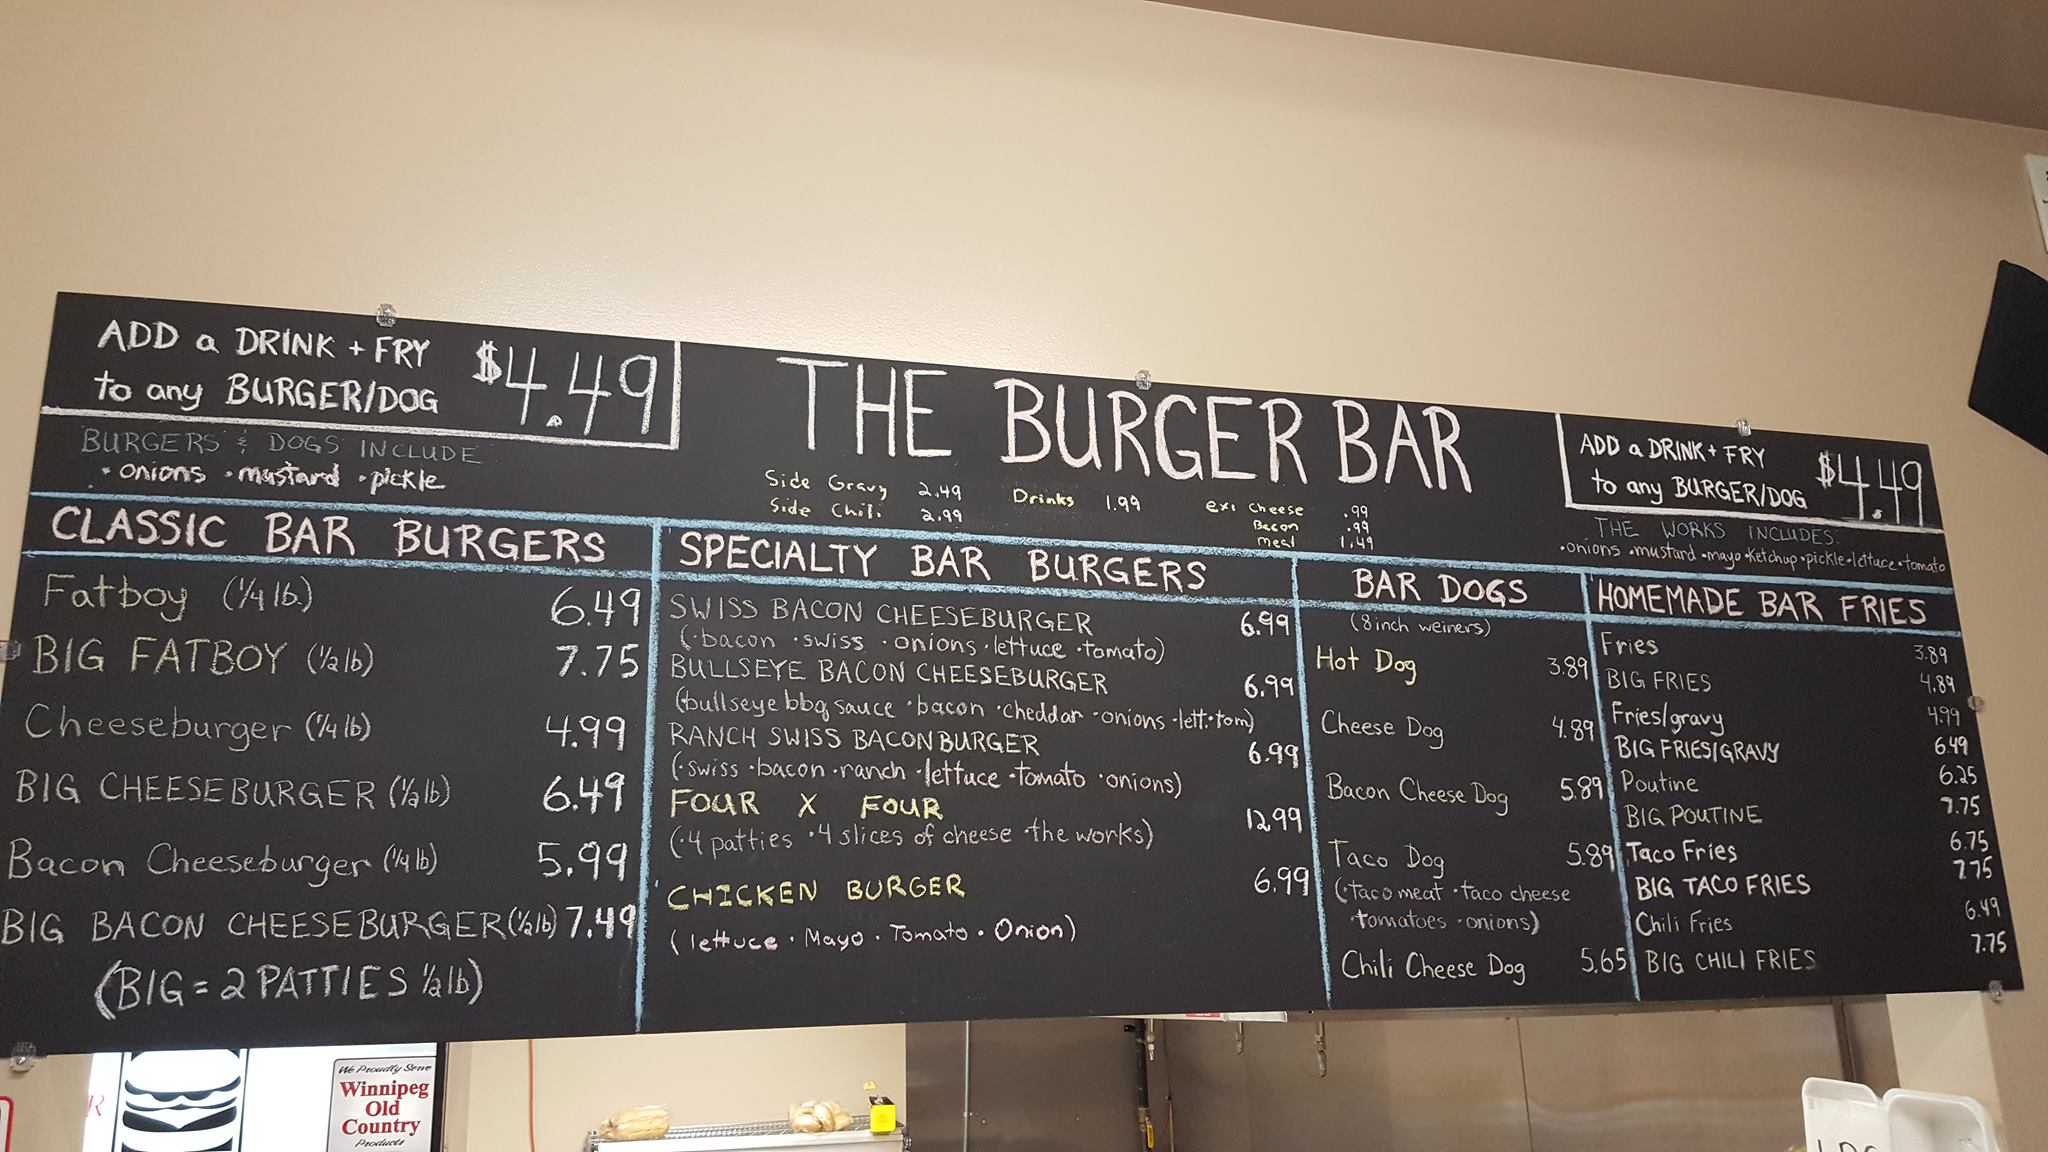 ADD a DRINK + FRY
to any BURGER/DOG
$4.49
BURGERS & DOGS INCLUDE
• onions • mustard • pickle
THE BURGER BAR
Side Gravy 2.49
Side Chili 2.99
Drinks 1.99
ext cheese .99
Bacon .99
meat 1.49
ADD a DRINK + FRY
to any BURGER/DOG
$4.49
THE WORKS INCLUDES:
• onions • mustard • mayo • ketchup • pickle • lettuce • tomato
CLASSIC BAR BURGERS
Fatboy (1/4 lb.) 6.49
BIG FATBOY (1/2 lb) 7.75
Cheeseburger (1/4 lb) 4.99
BIG CHEESEBURGER (1/2 lb) 6.49
Bacon Cheeseburger (1/4 lb) 5.99
BIG BACON CHEESEBURGER (1/2 lb) 7.49
(BIG = 2 PATTIES 1/2 lb)
SPECIALTY BAR BURGERS
SWISS BACON CHEESEBURGER 6.99
(• bacon • swiss • onions • lettuce • tomato)
BULLSEYE BACON CHEESEBURGER 6.99
(bullseye bbq sauce • bacon • cheddar • onions • lett. • tom)
RANCH SWISS BACON BURGER 6.99
(• swiss • bacon • ranch • lettuce • tomato • onions)
FOUR X FOUR 12.99
(• 4 patties • 4 slices of cheese • the works)
CHICKEN BURGER 6.99
(lettuce • Mayo • Tomato • Onion)
BAR DOGS
(8 inch weiners)
Hot Dog 3.89
Cheese Dog 4.89
Bacon Cheese Dog 5.89
Taco Dog 5.89
(• taco meat • taco cheese
• tomatoes • onions)
Chili Cheese Dog 5.65
HOMEMADE BAR FRIES
Fries 3.89
BIG FRIES 4.89
Fries/gravy 4.99
BIG FRIES/GRAVY 6.49
Poutine 6.25
BIG POUTINE 7.75
Taco Fries 6.75
BIG TACO FRIES 7.75
Chili Fries 6.49
BIG CHILI FRIES 7.75
We Proudly Serve
Winnipeg
Old
Country
Products